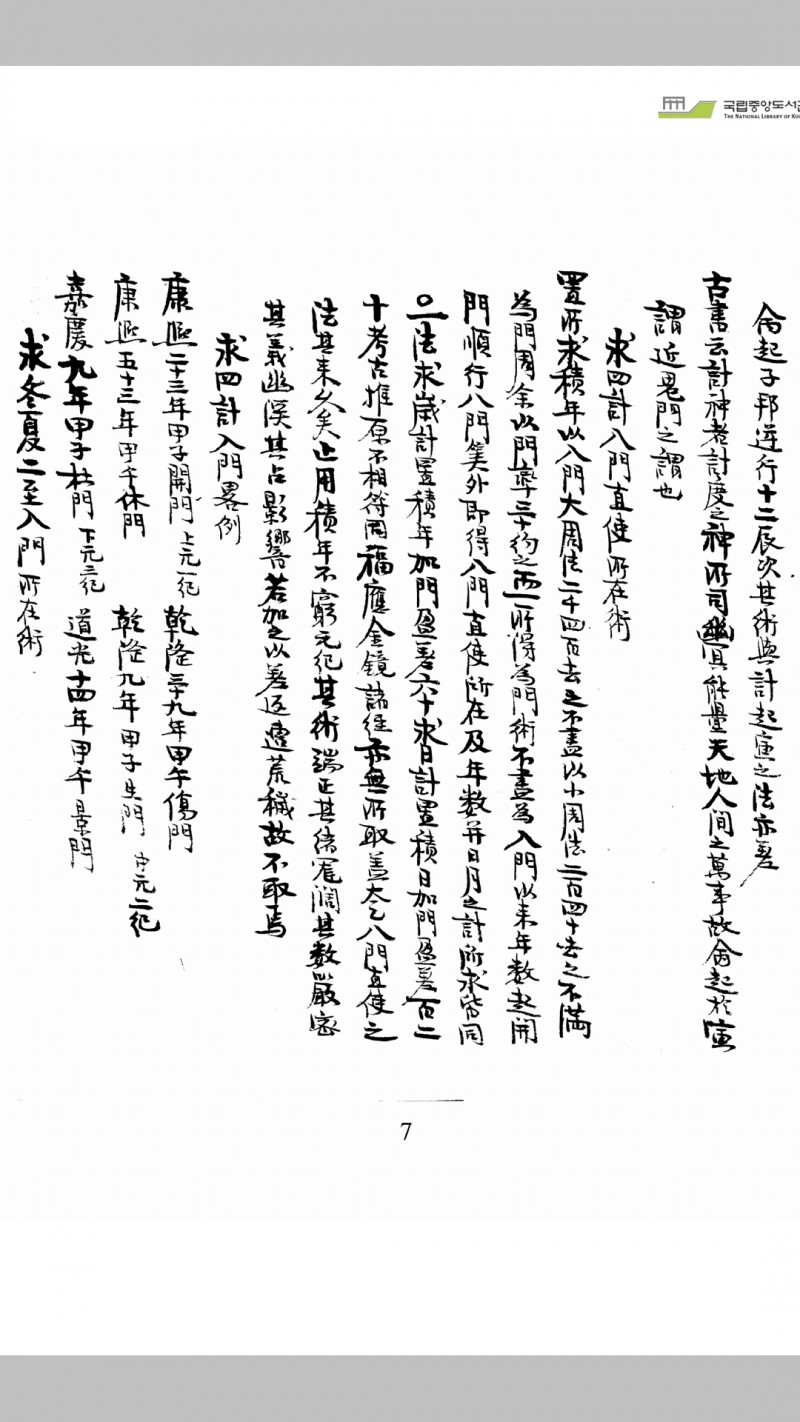 국립중앙도서관
THE NATIONAL LIBRARY OF KO
侖起子邦逆行十二辰次其術與計起寅之法亦差
古書云計神者計度之神所司幽冥能量天地人间之萬事故侖起於寅
謂近鬼門之謂也
求四計八門直使所在術
置所求積年以八門大周法二千四百去之不盡以小周法二百四十去之不滿
為門周余以門率三十約之而一所得為門術不盡為入門以来年数起開
門順行八門筭外即得八門直使所在及年数并日月之計所求皆同
〇一法求歲計置積年加門盈差六十求日計置積日加門盈差百二
十考古推原不相符同福應金鏡諸經亦無所取盖太乙八門直使之
法其来久矣止用積年不窮元紀其術端正其緒寬濶其数嚴密
其義幽深其占影響若加之以差返遭荒穢故不取焉
求四計入門畧例
康熙二十三年甲子開門 上元一紀 乾隆三十九年甲午傷門
康熙五十三年甲午休門 乾隆九年甲子生門 中元二紀
嘉慶九年甲子杜門 下元三紀 道光十四年甲午景門
求冬夏二至入門所在術
7